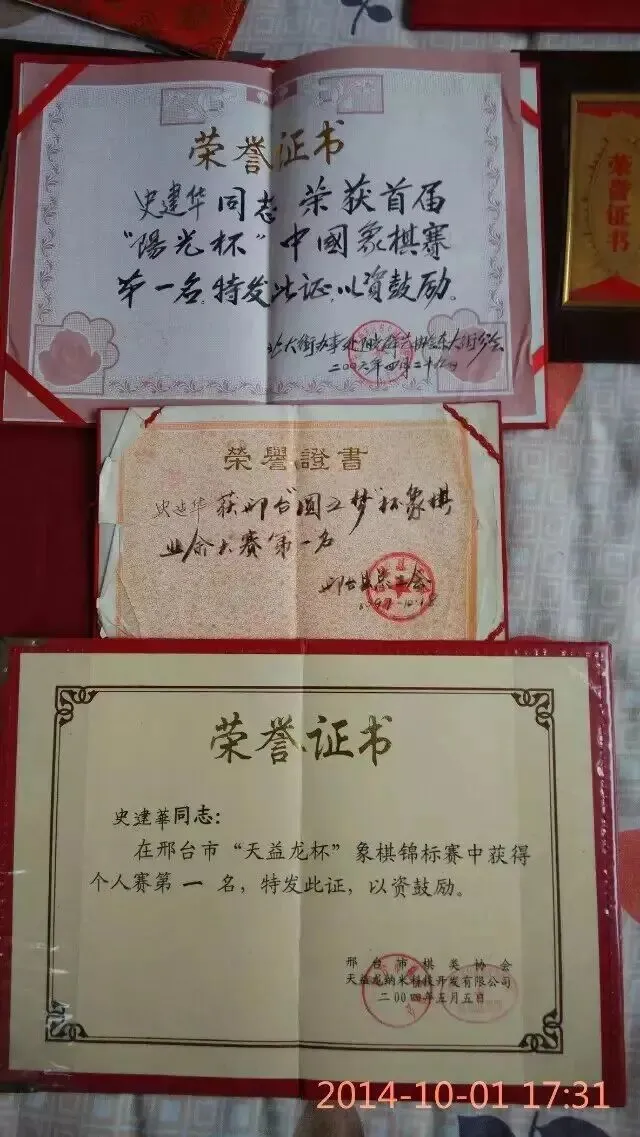 荣誉证书
史建华同志 荣获首届
“陽光杯”中國象棋赛
第一名,特发此证,以资鼓励。
荣誉证书
榮譽證書
史建华 获邢台“圆工梦”杯象棋
业余大赛第一名
荣誉证书
史建華同志:
在邢台市“天益龙杯”象棋锦标赛中获得
个人赛第一名,特发此证,以资鼓励。
邢台市棋类协会
天益龙纳米科技开发有限公司
二00四年五月五日
2014-10-01 17:31